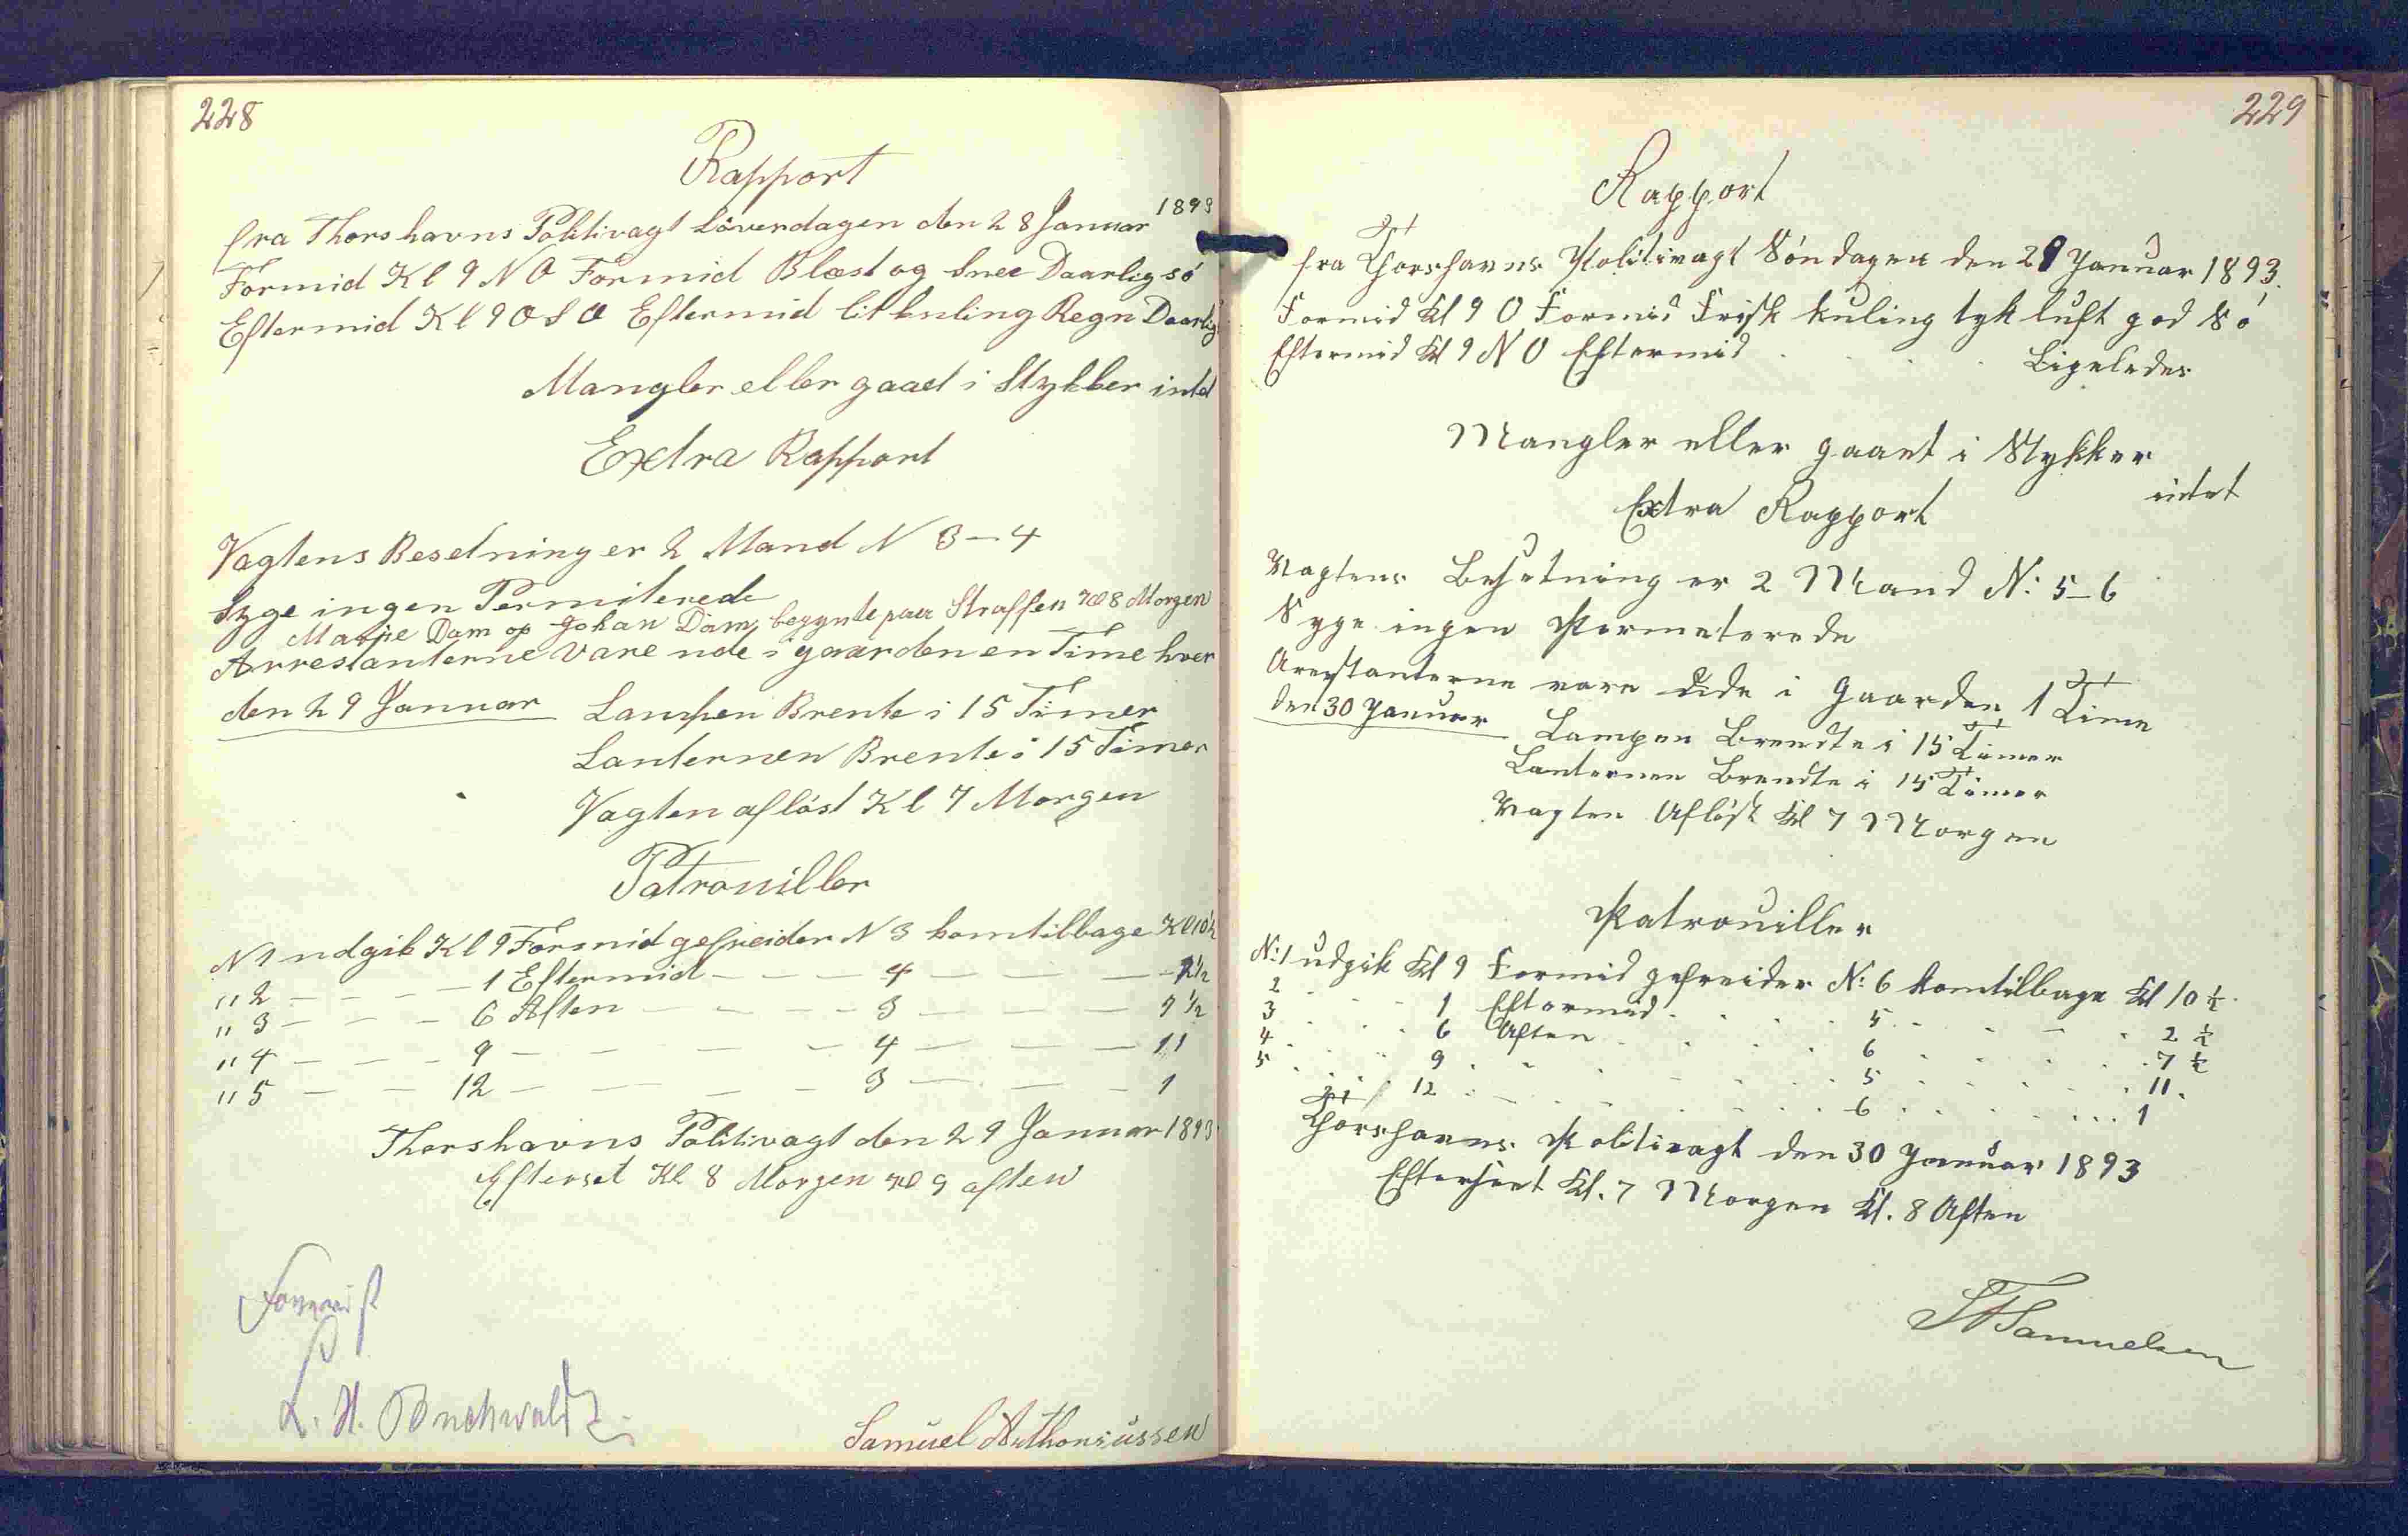 228
Rapport
fra Thorshavns Politivagt Löverdagen den 28 Januar 1893
Formid Kl 9 N O Formid Blæst og Snee Daarlig sö
Eftermid Kl 9 O S O Eftermid lit kuling Regn Daarlig
Mangler eller gaaet i Stykker intet
Extra Rapport
Vagtens Besetning er 2 Mand N 3-4
Syge ingen Permiterede
Marjie Dam og Johan Dam begynte paa Straffen Kl 8 Morgen
Arrestanterne vare ude i gaarden en Time hver
den 29 Januar Lampen Brente i 15 Timer
Lanternen Brente i 15 Timer
Vagten aflöst Kl 7 Morgen
Patrouiller
N 1 udgik Kl 9 Formid gefreider N 3 komtilbage Kl 10½
" 2 — — — 1 Eftermid — — — 4 — — — 2½
" 3 — — — 6 Aften — — — 3 — — — 7½
" 4 — — — 9 — — — 4 — — — 11
" 5 — — — 12 — — — 3 — — — 1
Thorshavns Politivagt den 29 Januar 1893
Efterset Kl 8 Morgen Kl 9 aften
L. H. Buchwaldt
Samuel A. Thomsussen
229
Rapport
fra Thorshavns Politivagt Söndagen den 29 Januar 1893.
Formid Kl 9 O Formid Frisk kuling tyk luft god Sö
Eftermid Kl 9 N O Eftermid . . . . Ligeledes
Mangler eller gaaet i Stykker
intet
Extra Rapport
Vagtens Besetning er 2 Mand N: 5-6
Syge ingen Permeterede
Arestanterne vare ude i Gaarden 1 Time
Den 30 Januar Lampen Brendte i 15 Timer
Lanternen Brendte i 15 Timer
Vagten Aflöst Kl 7 Morgen
Patrouiller
N:1 udgik Kl 9 Formid gefreider N: 6 komtilbage Kl 10 ½
2 . . . 1 Eftermid . . . 5 . . . 2 ½
3 . . . 6 Aften . . . 6 . . . 7 ½
4 . . . 9 . . . 5 . . . 11.
5 . . . 12 . . . 6 . . . 1
Thorshavns Politivagt den 30 Januar 1893
Efterseet Kl. 7 Morgen Kl. 8 Aften
Samuelsen